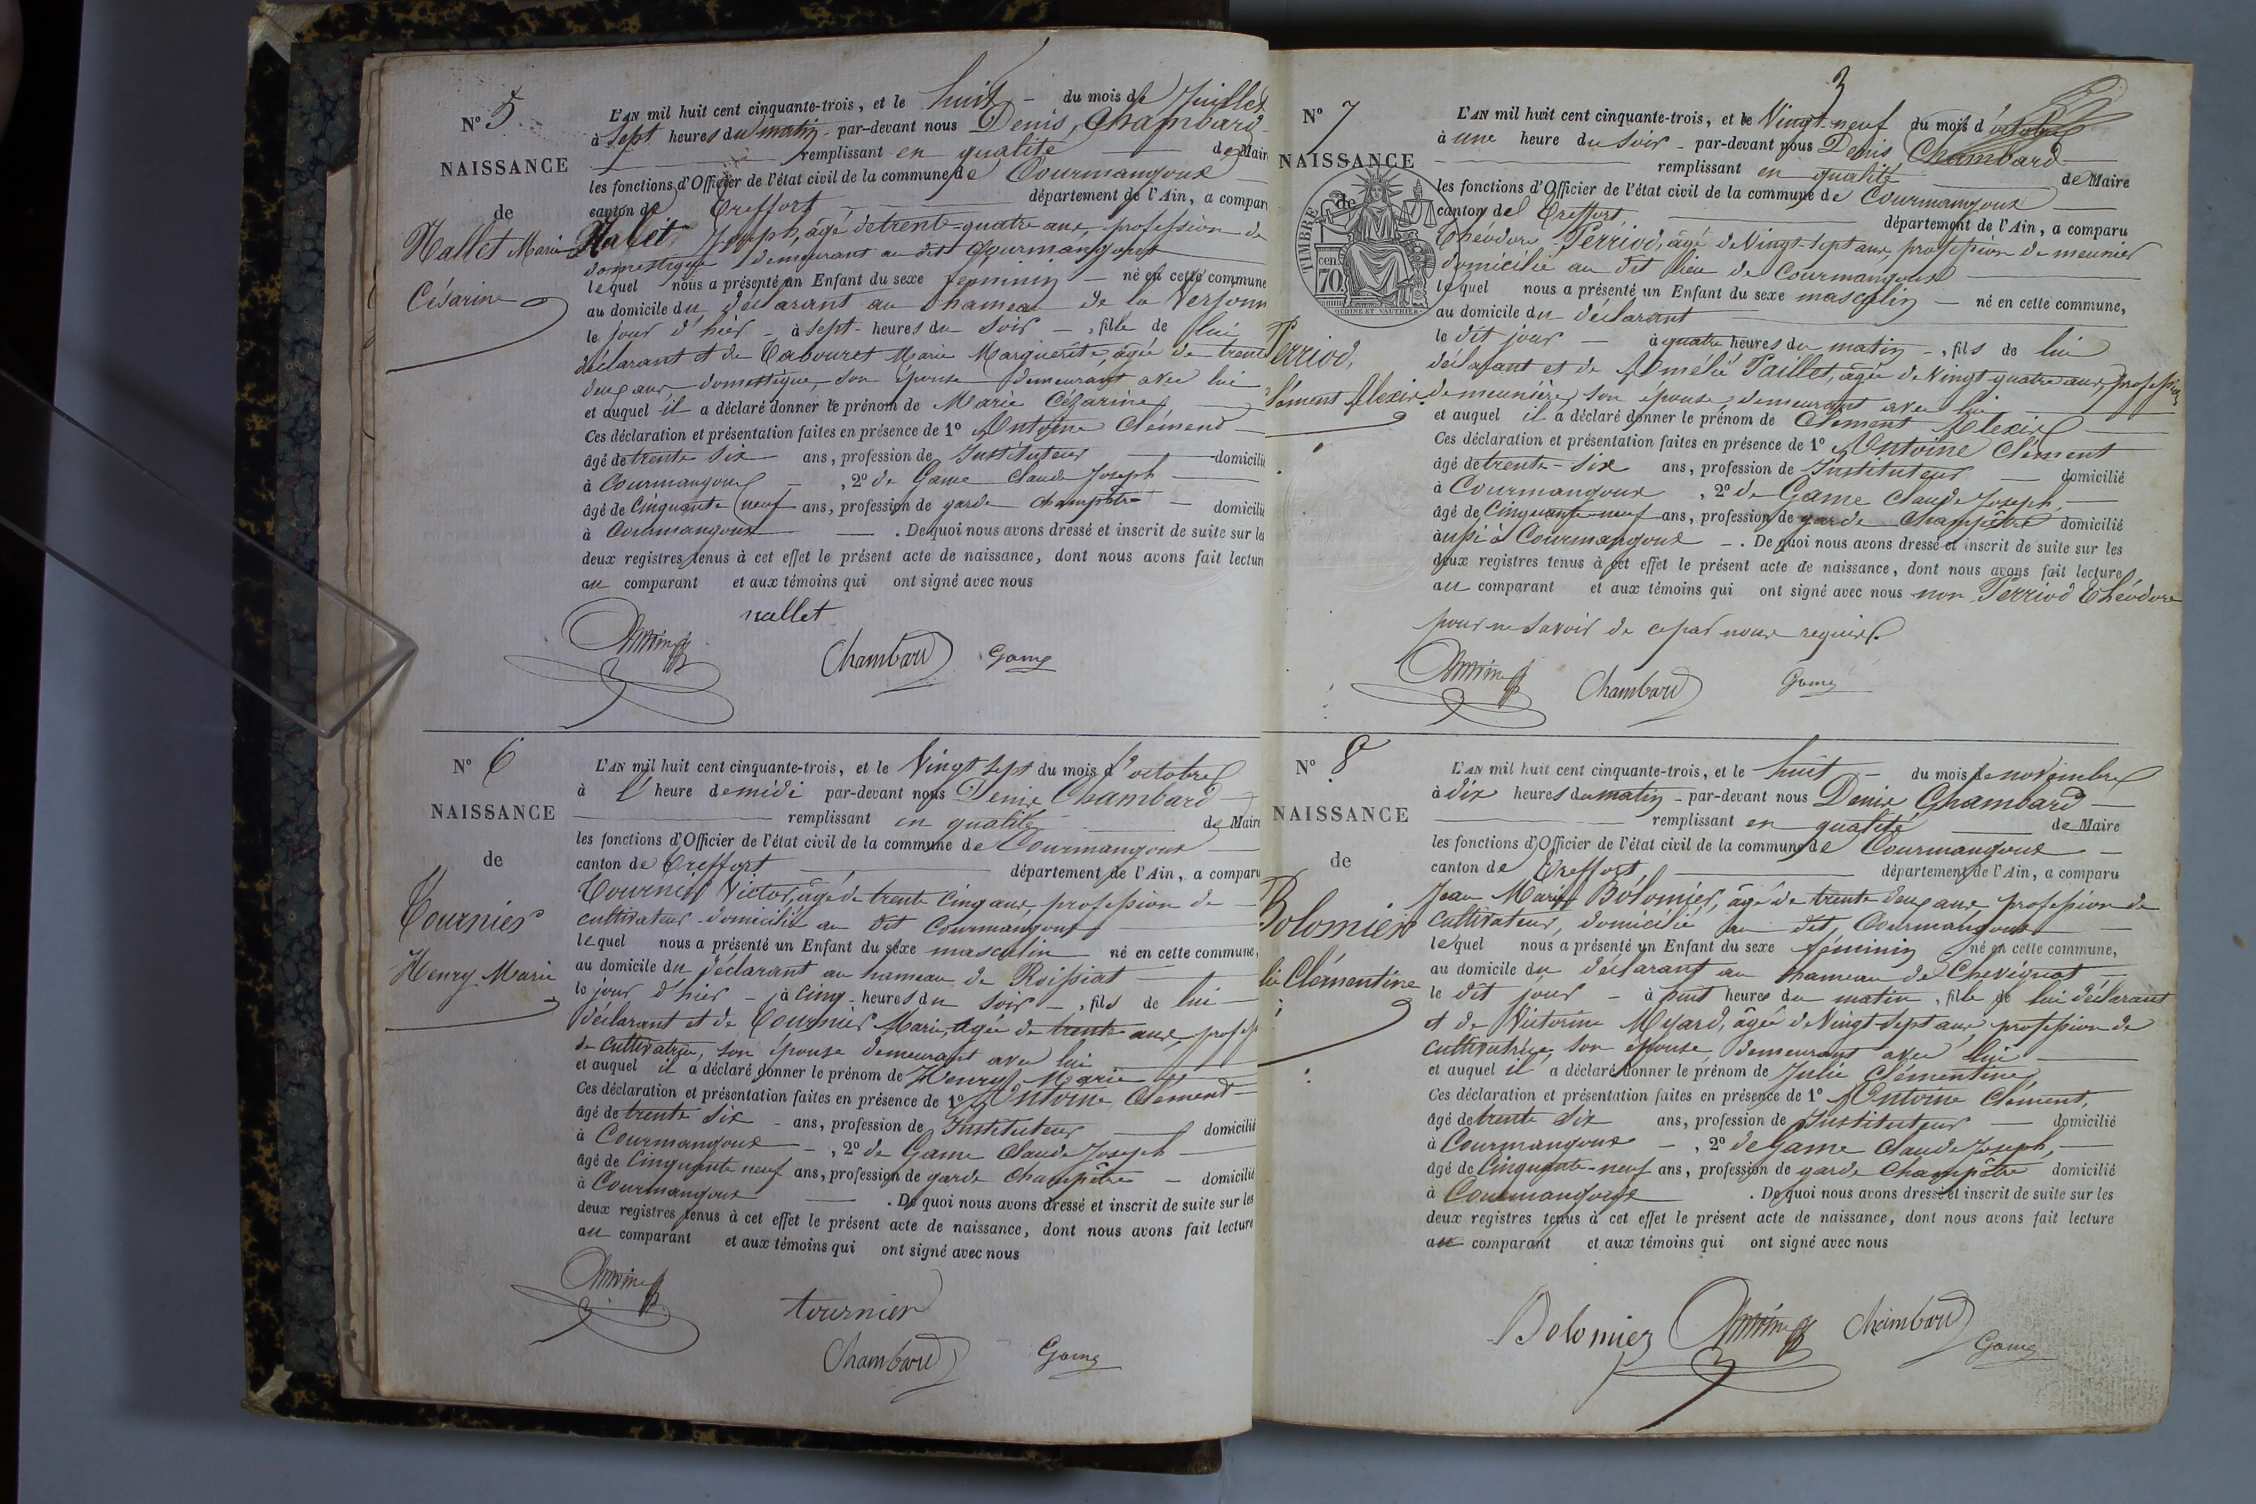 N° 5
NAISSANCE
de
Nallet Marie
Césarine
L'AN mil huit cent cinquante-trois, et le huit - du mois de Juillet
à sept heures du matin - par-devant nous Denis Chambard
remplissant en qualité de Maire
les fonctions d'Officier de l'état civil de la commune de Courmangoux
canton de Treffort département de l'Ain, a comparu
Nallet Joseph, âgé de trente-quatre ans, profession de
domestique demeurant au dit Courmangoux
lequel nous a présenté un Enfant du sexe féminin - né en cette commune
au domicile du déclarant au hameau de la Verjonn
le jour d'hier - à sept - heures du soir - , fille de lui
déclarant et de Tabouret Marie Marguerite, âgée de trente
deux ans, domestique, son épouse demeurant avec lui
et auquel il a déclaré donner le prénom de Marie Césarine
Ces déclaration et présentation faites en présence de 1° Antoine Clémend
âgé de trente six ans, profession de Instituteur domicilié
à Courmangoux - , 2° de Game Claude Joseph
âgé de Cinquante neuf ans, profession de garde champêtre - domicilié
à Courmangoux . De quoi nous avons dressé et inscrit de suite sur les
deux registres tenus à cet effet le présent acte de naissance, dont nous avons fait lecture
au comparant et aux témoins qui ont signé avec nous
nallet
Chambard Game
N° 6
NAISSANCE
de
Tournier
Henry Marie
L'AN mil huit cent cinquante-trois, et le Vingt sept du mois d'octobre
à l'heure de midi par-devant nous Denis Chambard
remplissant en qualité de Maire
les fonctions d'Officier de l'état civil de la commune de Courmangoux
canton de Treffort département de l'Ain, a comparu
Tournier Victor, âgé de trente cinq ans, profession de
cultivateur domicilié au dit Courmangoux
lequel nous a présenté un Enfant du sexe masculin né en cette commune,
au domicile du déclarant au hameau de Roissiat
le jour d'hier - à cinq - heures du soir - , fils de lui
déclarant et de Tournier Marie, âgée de trente ans, profess
de cultivatrice, son épouse demeurant avec lui
et auquel il a déclaré donner le prénom de Henry Marie
Ces déclaration et présentation faites en présence de 1° Antoine Clément
âgé de trente six - ans, profession de Instituteur domicilié
à Courmangoux - , 2° de Game Claude Joseph
âgé de Cinquante neuf ans, profession de garde champêtre - domicilié
à Courmangoux . De quoi nous avons dressé et inscrit de suite sur les
deux registres tenus à cet effet le présent acte de naissance, dont nous avons fait lecture
au comparant et aux témoins qui ont signé avec nous
tournier
Chambard Game
3
N° 7
NAISSANCE
de
TIMBRE
70 cen
Perriod,
Clément Alexis.
L'AN mil huit cent cinquante-trois, et le Vingt-neuf du mois d'octobre
à une heure du soir - par-devant nous Denis Chambard
remplissant en qualité de Maire
les fonctions d'Officier de l'état civil de la commune de Courmangoux
canton de Treffort, département de l'Ain, a comparu
Théodore Perriod, âgé de Vingt-sept ans, profession de meunier
domicilié au dit lieu de Courmangoux
lequel nous a présenté un Enfant du sexe masculin - né en cette commune,
au domicile du déclarant
le dit jour - à quatre heures du matin - , fils de lui
déclarant et de Amélie Paillet, âgée de Vingt quatre ans, profession
de meunière, son épouse, demeurant avec lui
et auquel il a déclaré donner le prénom de Clément Alexis
Ces déclaration et présentation faites en présence de 1° Antoine Clément
âgé de trente-six ans, profession de Instituteur - domicilié
à Courmangoux , 2° de Game Claude Joseph,
âgé de Cinquante-neuf ans, profession de garde champêtre domicilié
aussi à Courmangoux - . De quoi nous avons dressé et inscrit de suite sur les
deux registres tenus à cet effet le présent acte de naissance, dont nous avons fait lecture
au comparant et aux témoins qui ont signé avec nous non Perriod Théodore
pour ne savoir de ce par nous requis.
Chambard Game
N° 8
NAISSANCE
de
Bolomier
Clémentine
L'AN mil huit cent cinquante-trois, et le huit - du mois de novembre
à dix heures du matin - par-devant nous Denis Chambard
remplissant en qualité de Maire
les fonctions d'Officier de l'état civil de la commune de Courmangoux
canton de Treffort, département de l'Ain, a comparu
Jean Marie Bolomier, âgé de trente deux ans profession de
cultivateur, domicilié au dit, Courmangoux
lequel nous a présenté un Enfant du sexe féminin né en cette commune,
au domicile du déclarant au hameau de Chevignat
le dit jour - à huit heures du matin , fille de lui déclarant
et de Victorine Myard, âgée de Vingt-sept ans, profession de
cultivatrice, son épouse, demeurant avec lui
et auquel il a déclaré donner le prénom de Julie Clémentine
Ces déclaration et présentation faites en présence de 1° Antoine Clément,
âgé de trente six ans, profession de Instituteur - domicilié
à Courmangoux - , 2° de Game Claude Joseph,
âgé de Cinquante-neuf ans, profession de garde champêtre domicilié
à Courmangoux . De quoi nous avons dressé et inscrit de suite sur les
deux registres tenus à cet effet le présent acte de naissance, dont nous avons fait lecture
au comparant et aux témoins qui ont signé avec nous
Bolomier Chambard Game